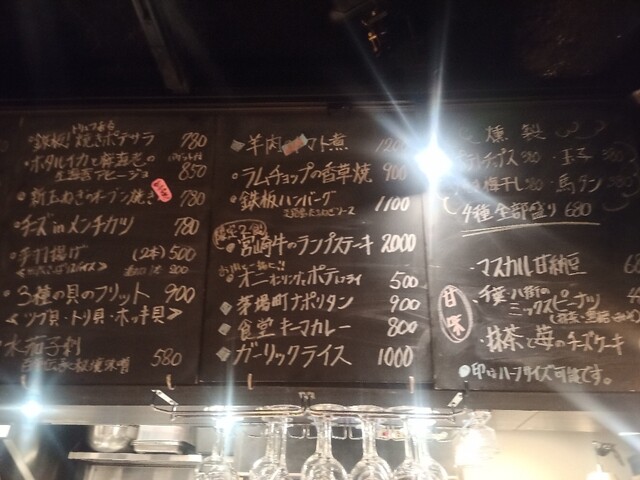 トリュフ香る
鉄板!焼きポテサラ 780
ホタルイカと
850
新玉ねぎのオーブン焼き
チーズinメンチカツ 780
手羽揚げ (2本) 500
3種の貝のフリット 900
<ツブ貝・トリ貝・ホッキ貝>
水茄子刺
580
羊肉のトマト煮
ラムチョップの香草焼 900
鉄板ハンバーグ 1100
宮崎牛のランプステーキ 2000
オニオンリングとポテトフライ 500
茅場町ナポリタン 900
食堂キーマカレー 800
ガーリックライス 1000
燻製
ポテトチップス ・玉子
梅干し ・馬タン
4種全部盛り 680
甘味
マスカル甘納豆
千葉・八街の
ミックスピーナッツ
抹茶と苺のチーズケーキ
●印はハーフサイズ可能です。